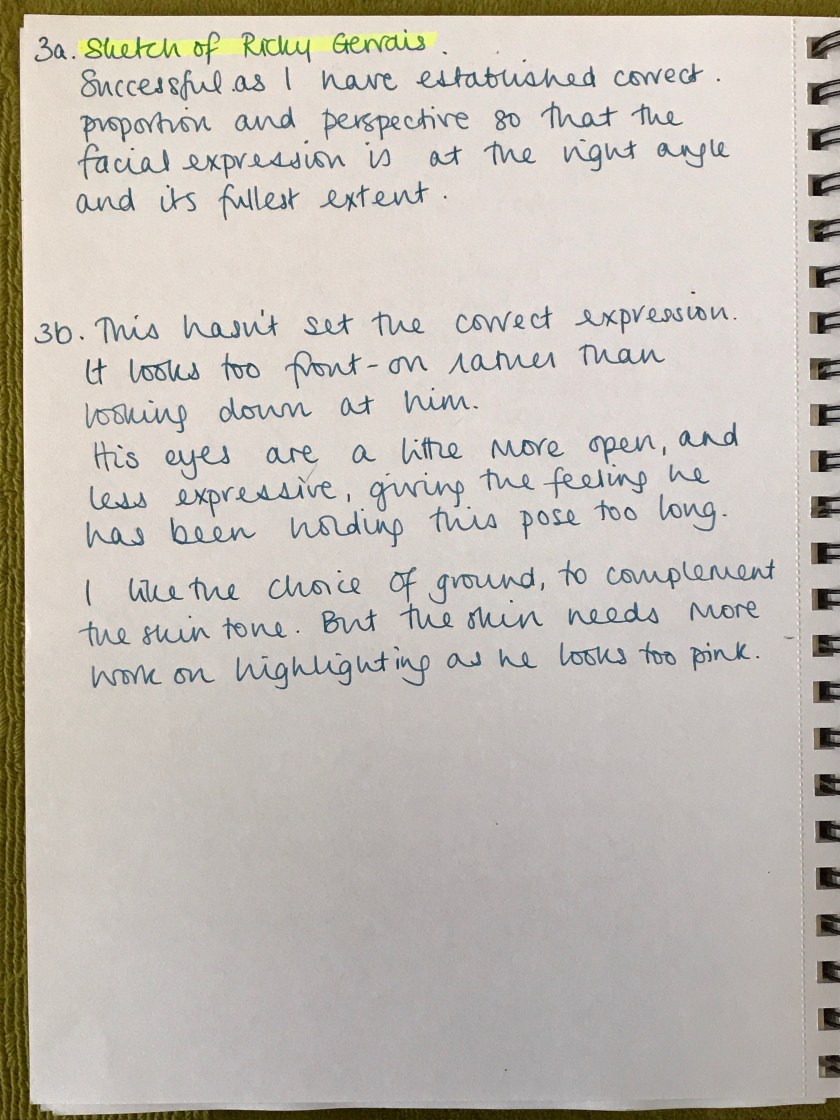 3a. Sketch of Ricky Gervais.
Successful as I have established correct.
proportion and perspective so that the
facial expression is at the right angle
and its fullest extent.
3b. This hasn't set the correct expression.
It looks too front-on rather than
looking down at him.
His eyes are a little more open, and
less expressive, giving the feeling he
has been holding this pose too long.
I like the choice of ground, to complement
the skin tone. But the skin needs more
work on highlighting as he looks too pink.